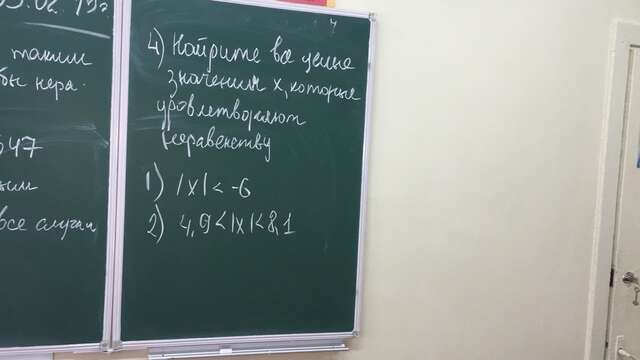 03.02.19г.
таким
бы нера-
547
ким
все случаи
4) Найдите все целые
значения x, которые
удовлетворяют
неравенству
1) |x| < -6
2) 4,9 < |x| < 8,1